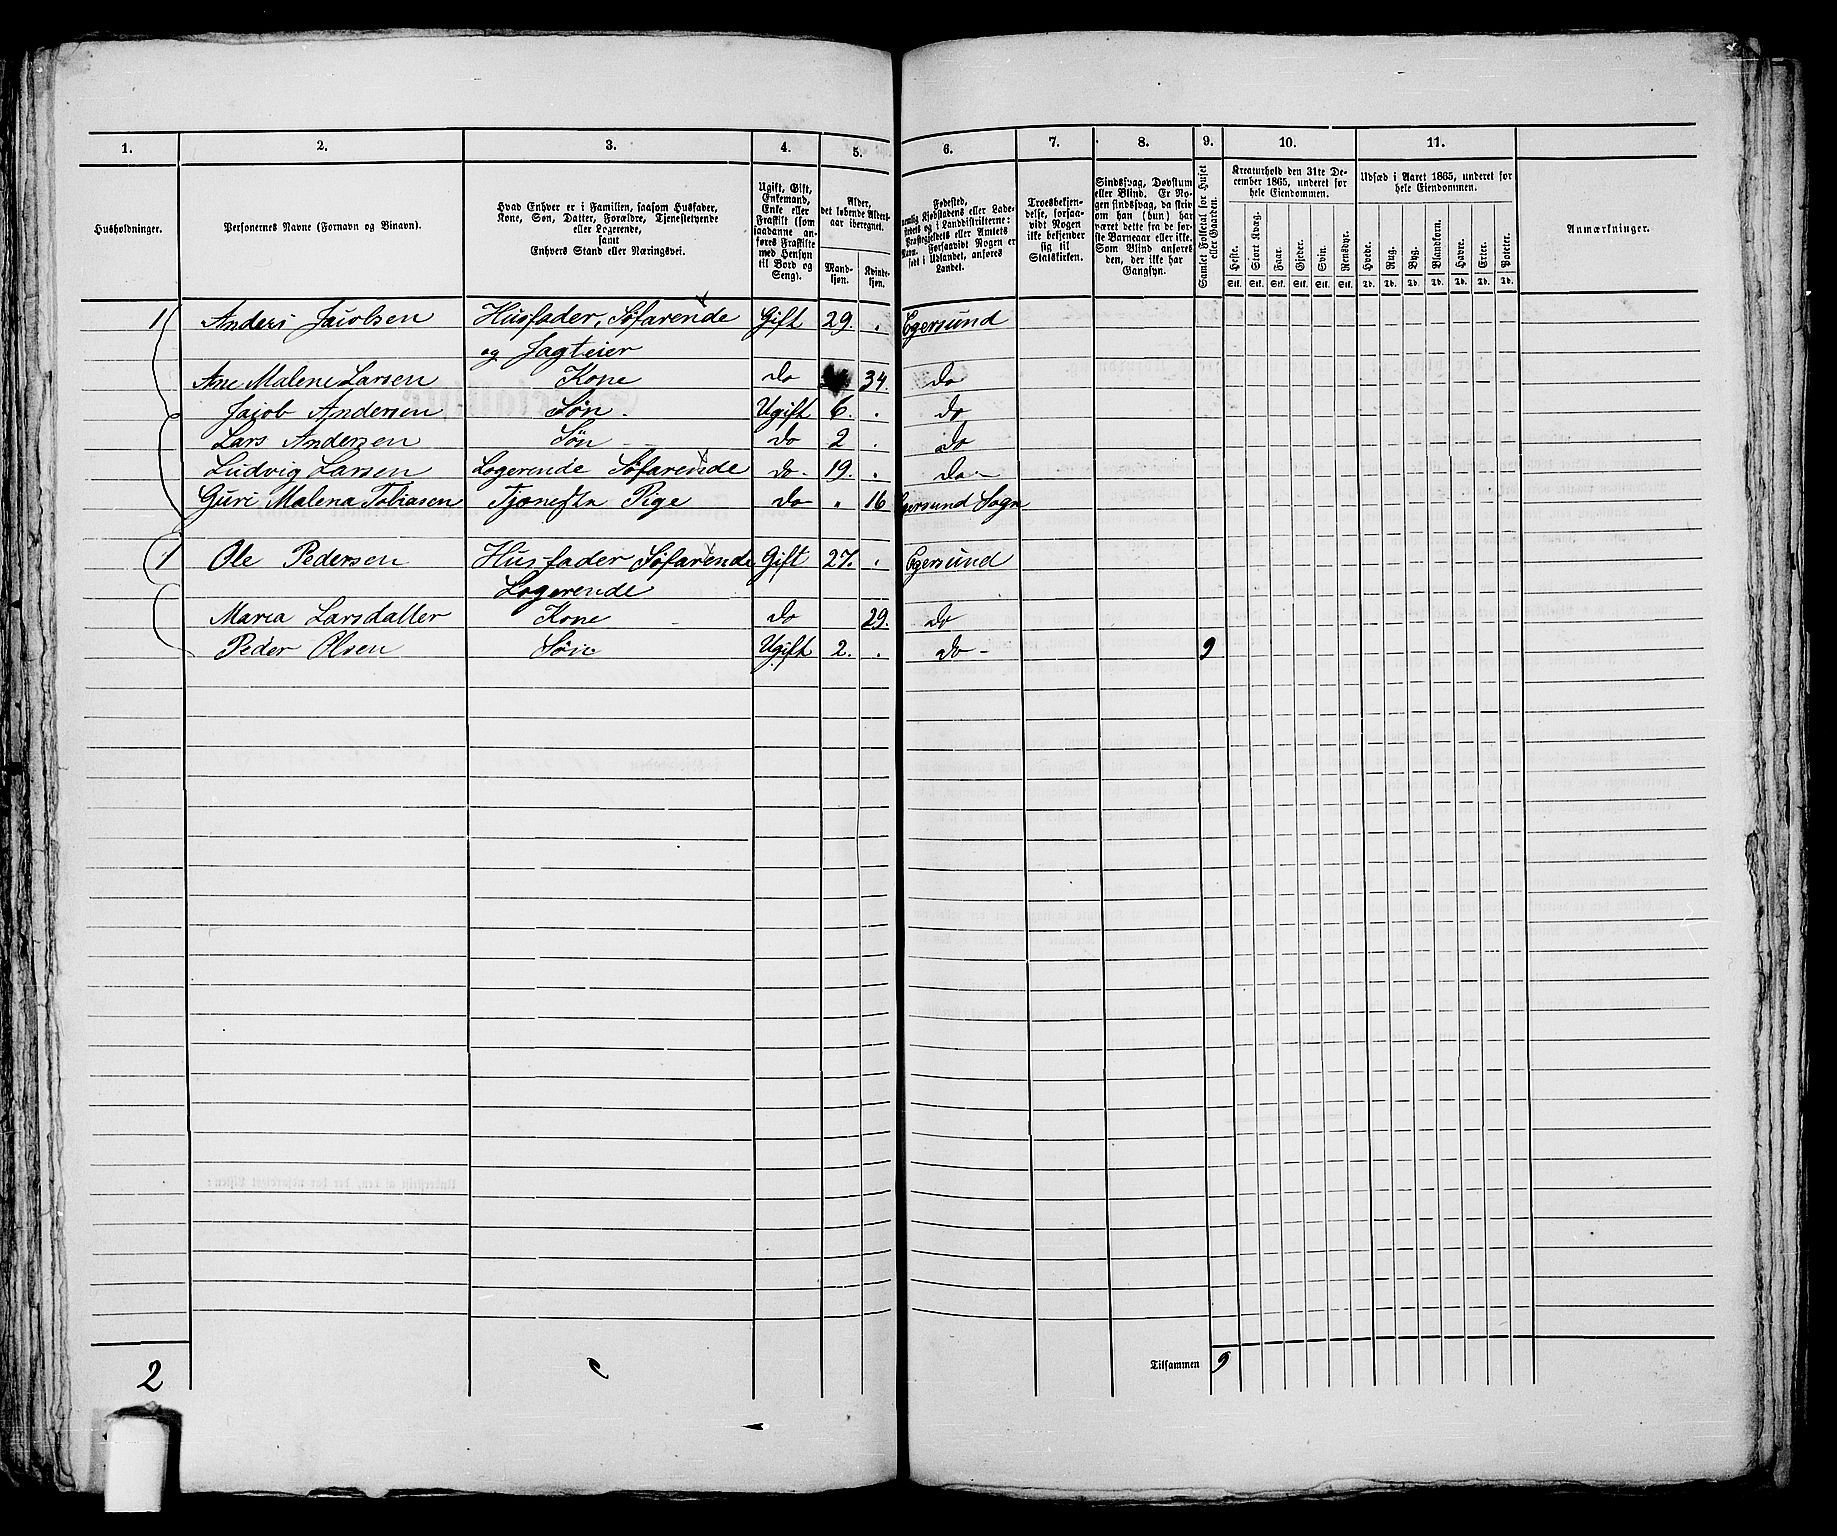 1. 2. 3. 4. 5. 6. 7. 8. 9. 10. 11.
Husholdninger.
Personernes Navne (Fornavn og Binavn).
Hvad Enhver er i Familien, saasom Husfader,
Kone, Søn, Datter, Forældre, Tjenestetyende
eller Logerende,
samt
Enhvers Stand eller Næringsvei.
Ugift, Gift,
Enkemand,
Enke eller
Fraskilt (som
saadanne an-
føres Fraskilte
med Hensyn
til Bord og
Seng).
Alder,
det løbende Alders-
aar iberegnet.
Mand-
kjøn.
Kvinde-
kjøn.
Fødested,
Kjøbstadens eller Lade-
stedets og i Landdistrikterne:
Præstegjeldets eller Amtets
Navn. Forsaavidt Nogen er
født i Udlandet, anføres
Landet.
Troesbekjen-
delse, forsaa-
vidt Nogen
ikke bekjender
sig til
Statskirken.
Sindssvag, Døvstum
eller Blind. Er No-
gen sindssvag, da skriv
om han (hun) har
været dette fra de før-
ste Barneaar eller ikke.
Som Blind anføres
den, der ikke har
Gangsyn.
Samlet Folketal for Huset
eller Gaarden.
Kreaturhold den 31te De-
cember 1865, underet for
hele Eiendommen.
Heste. Stort Kvæg. Faar. Gjeder. Svin. Rensdyr.
Stk. Stk. Stk. Stk. Stk. Stk.
Udsæd i Aaret 1865, underet for
hele Eiendommen.
Hvede. Rug. Byg. Blandkorn. Havre. Erter. Poteter.
Td. Td. Td. Td. Td. Td. Td.
Anmærkninger.
1 Anders Jacobsen Husfader, Søfarende Gift 29. Egersund
og Jagteier
Ane Malene Larsen Kone do 34. do
Jacob Andersen Søn. Ugift 6. do
Lars Andersen Søn do 2 do
Ludvig Larsen Logerende Søfarende do 19. do
Guri Malena Tobiasen Tjeneste Pige do " 16 Egersund Sogn
1 Ole Pedersen Husfader Søfarende Gift 27. Egersund
Logerende
Maria Larsdatter Kone do 29. do
Peder Olsen Søn Ugift 2. do 9
2 Tilsammen 9